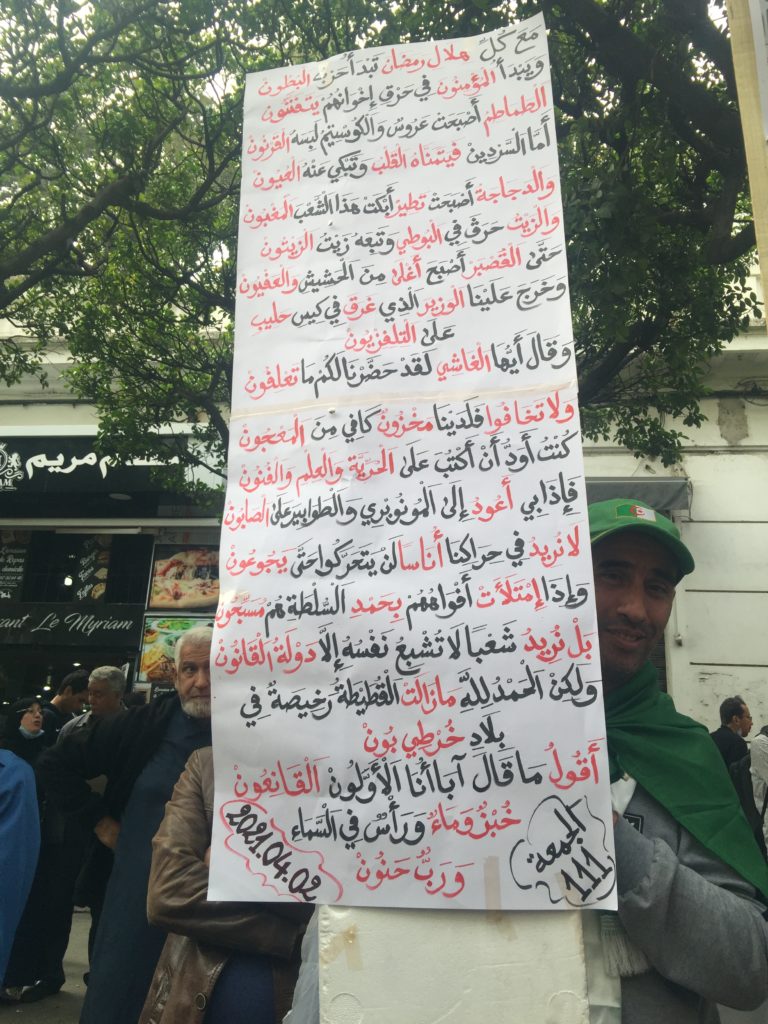 مع كلّ هلال رمضان تبدأ حرب البطون
ويبدأ المؤمنون في حرق إخوانهم يتفننون
الطماطم أصبحت عروس والكوستيم لبسه القرنون
أمّا السردين فيتمناه القلب وتبكي عنه العيون
والدجاجة أصبحت تطير أبكت هذا الشعب المغبون
والزيت حرق في البوطي وتبعه زيت الزيتون
حتى القصبر أصبح أغلى من الحشيش والعفيون
وخرج علينا الوزير الذي غرق في كيس حليب
على التلفزيون
وقال أيها الغاشي لقد حضّرنا لكم ما تعلفون
ولا تخافوا فلدينا مخزون كافي من المعجون
كنت أودّ أن أكتب على الحرية والعلم والفنون
فإذا بي أعود إلى المونوبري والطوابير على الصابون
لا نريد في حراكنا أناسا لن يتحركوا حتى يجوعون
وإذا إمتلأت أفواههم بحمد السلطة هم مسبّحون
بل نريد شعبا لا تشبع نفسه إلّا دولة القانون
ولكن الحمد لله مازالت القطيطة رخيصة في
بلاد خرطي بون
أقول ما قال آباأنا الأولون القانعون
خبز وماء ورأس في السماء
ورب حنون
2021.04.02
الجمعة
111
مريم
Le Myriam